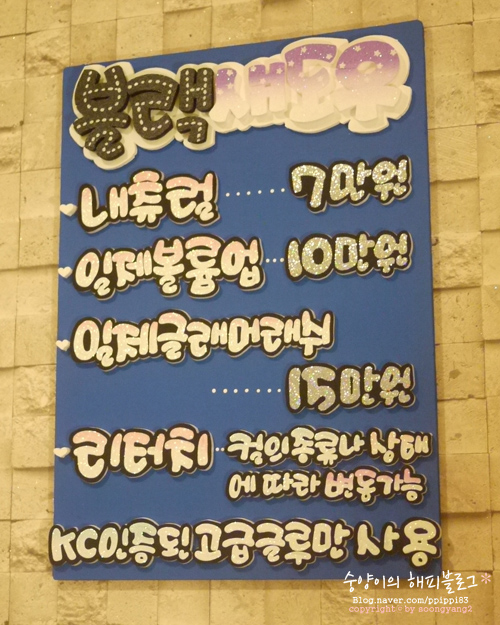 블랙 섀도우
내츄럴 ······ 7만원
일제볼륨업 ··· 10만원
일제글래머래쉬
······· 15만원
리터치 ·· 컬의종류나 상태
에 따라 변동가능
KC인증된고급글루만 사용
숭양이의 해피블로그*
Blog.naver.com/ppippi83
copyright by soongyang2